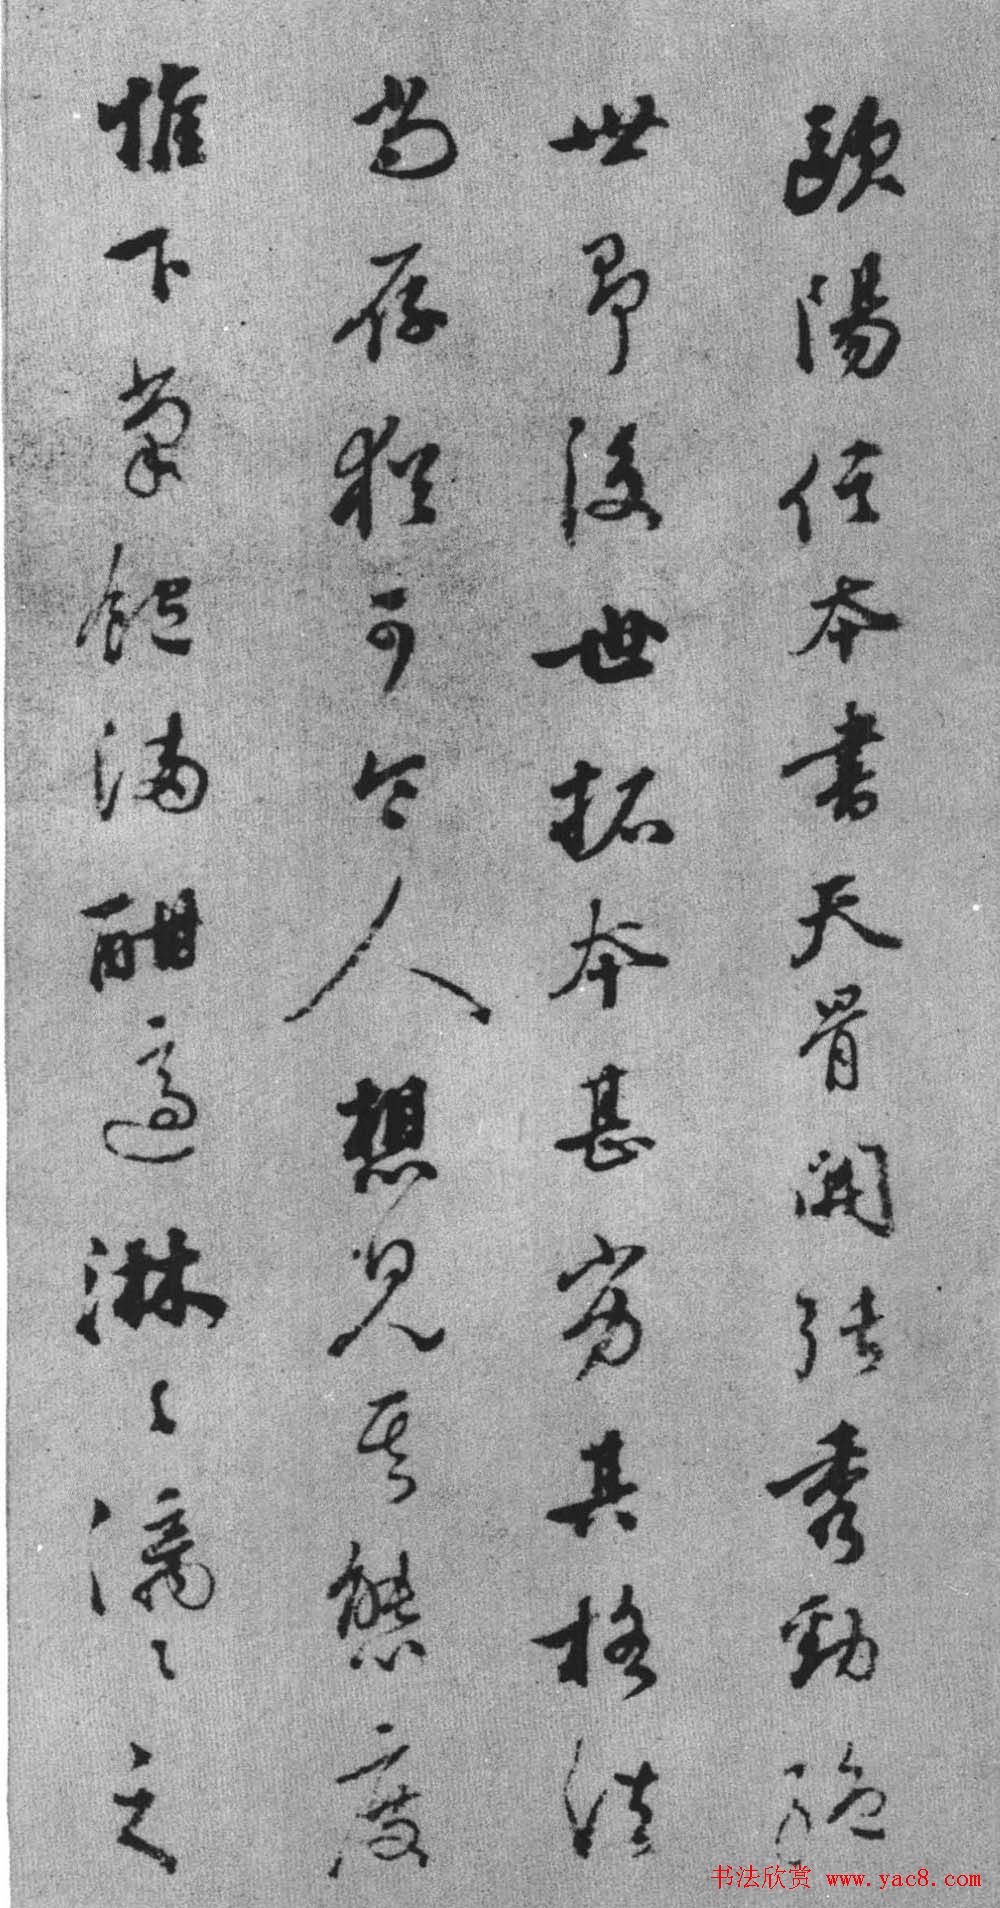 歐陽信本書天骨開張秀勁絕
世即後世拓本甚劣其格法
尚存猶可令人想見其態度
惟下筆飽滿酣適淋〻漓〻之
书法欣赏 www.yac8.com